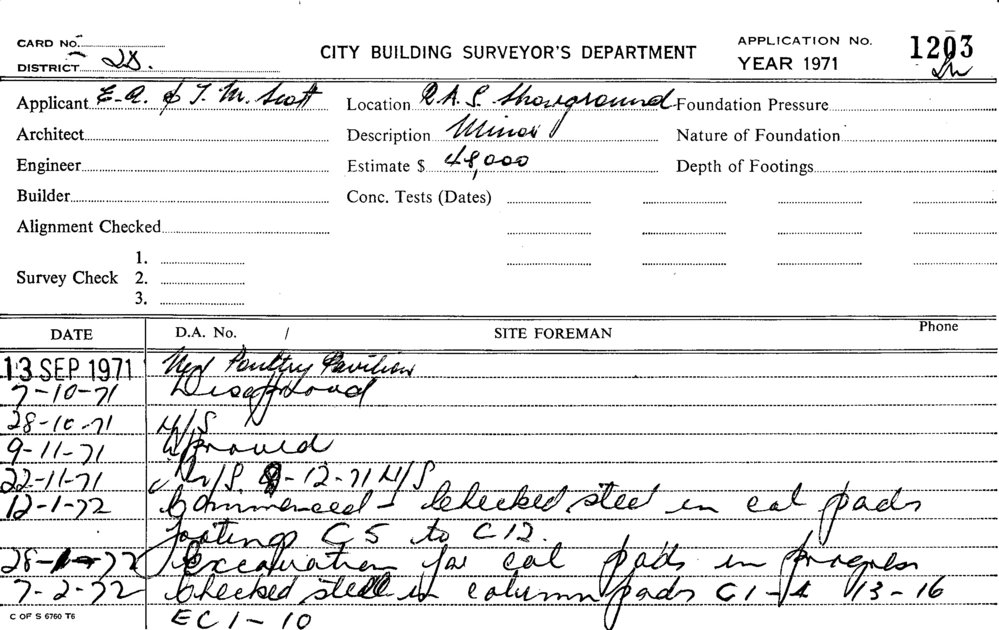 CARD NO.
DISTRICT 28.
CITY BUILDING SURVEYOR'S DEPARTMENT
APPLICATION No. 1203
YEAR 1971
Applicant E. A. & T. M. Scott Location R.A.S. Showground Foundation Pressure
Architect Description Minor Nature of Foundation
Engineer Estimate $ 48,000 Depth of Footings
Builder Conc. Tests (Dates)
Alignment Checked
Survey Check 1.
2.
3.
DATE D.A. No. / SITE FOREMAN Phone
13 SEP 1971 New Poultry Pavilion
7-10-71 Disapproved
28-10-71 N/S
9-11-71 Approved
22-11-71 N/S 8-12-71 N/S
12-1-72 Commenced - Checked steel in col pads
footings C5 to C12.
28-1-72 Excavation for col pads in progress
7-2-72 Checked steel in column pads C1-4 13-16
EC1-10
C OF S 6760 T6